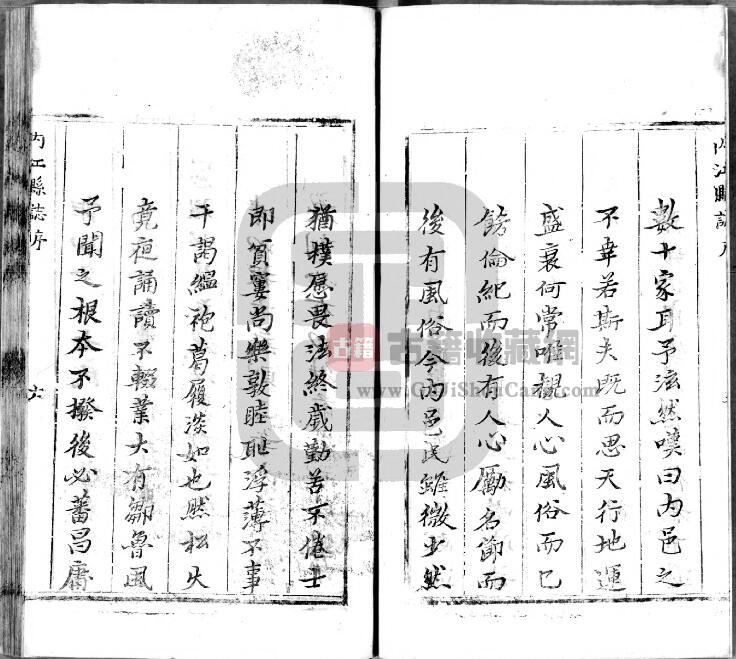 內江縣誌序
數十家耳予泫然嘆曰內邑之
不幸若斯夫既而思天行地運
盛衰何常唯視人心風俗而已
飭倫紀而後有人心勵名節而
後有風俗今內邑民雖微少然
猶樸愿畏法終歲勤苦不倦士
即貧窶尚樂敦睦恥浮薄不事
干謁縕袍葛履淡如也然松火
竟夜誦讀不輟業大有鄒魯風
予聞之根本不撥後必蕃昌庸
內江縣誌序
六
古籍
古籍收藏網
www.GuJiShouCang.com